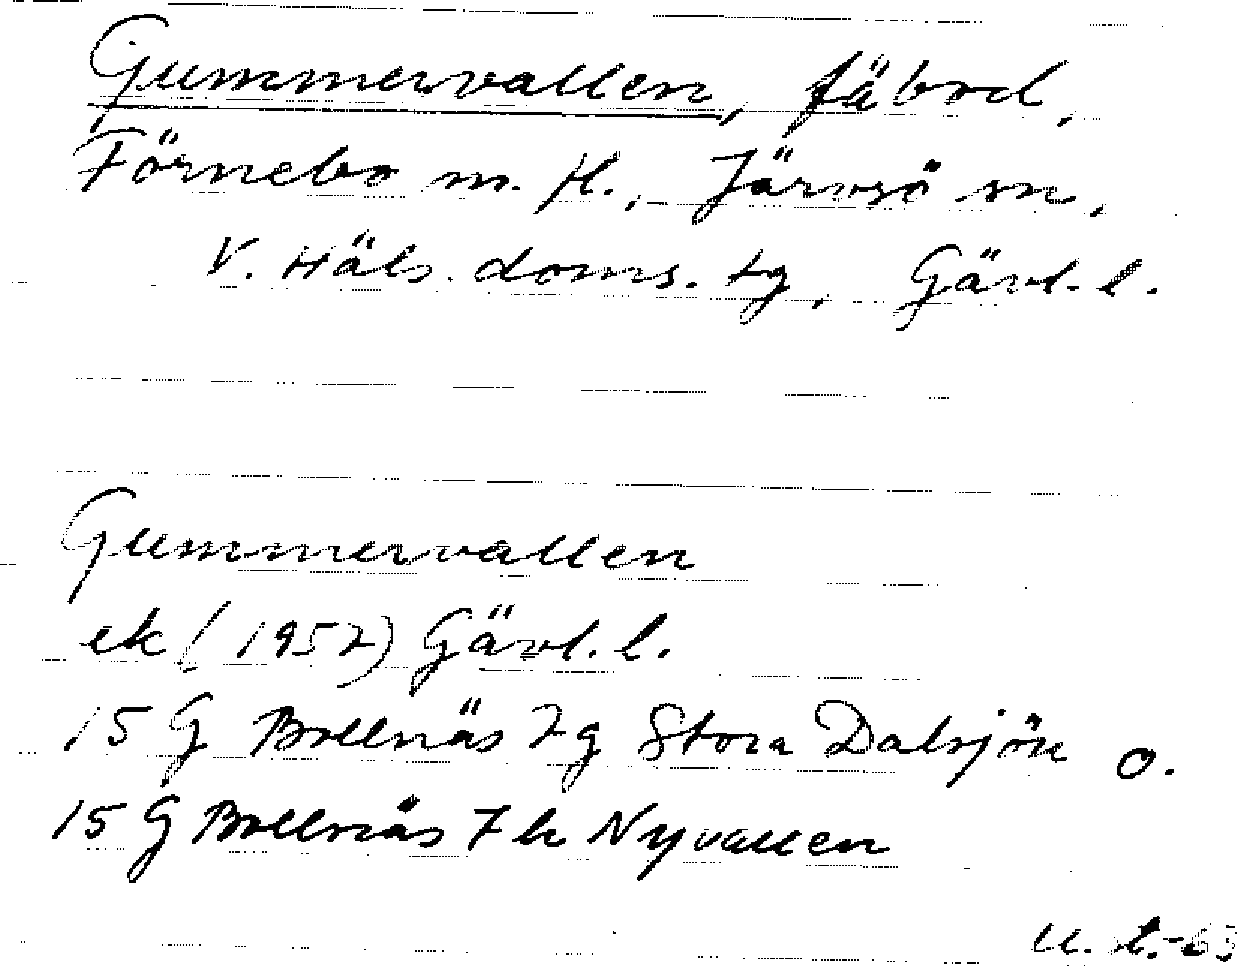 Gummervallen, fäbod,
Förnebo m. fl., Järvsö sn,
V. Häls. doms. tg, Gävl. l.
Gummervallen
ek (1952) Gävl. l.
15 G Bollnäs 7g Stora Dalsjön o.
15 G Bollnäs 7h Nyvallen